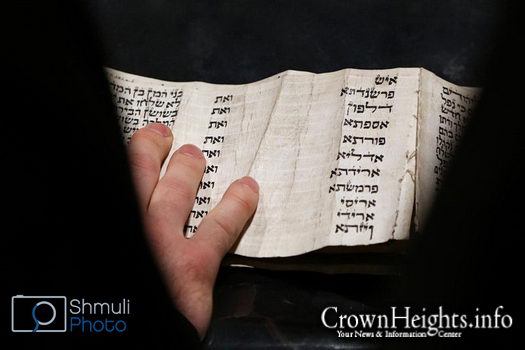 איש
פרשנדתא
דלפון
אספתא
פורתא
אדליא
ארידתא
פרמשתא
אריסי
ארידי
ויזתא
ואת
ואת
ואת
ואת
ואת
ואת
ואת
ואת
ואת
ואת
בני המן בן
לא שלחו את
בשושן
המלכה בשושן
Shmuli
Photo
CrownHeights.info
Your News & Information Center